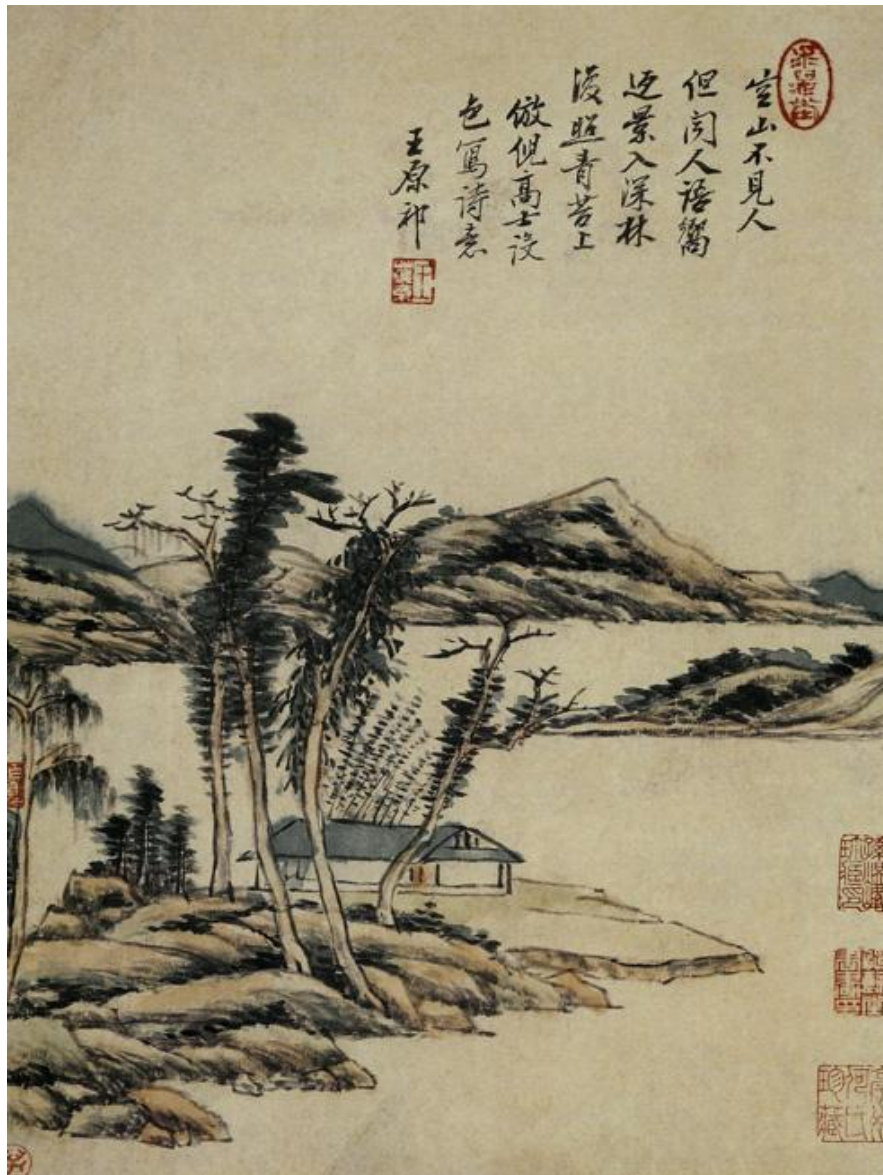 空山不見人
但聞人語嚮
返景入深林
復照青苔上
倣倪高士設
色寫詩意
王原祁